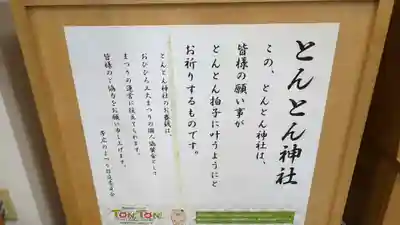 とんとん神社
この、とんとん神社は、
皆様の願い事が
とんとん拍子に叶うようにと
お祈りするものです。
とんとん神社のお賽銭は、
おびひろ三大まつりの個人協賛金として
まつりの運営に役立てられます。
皆様のご協力をお願い申し上げます。
TON TON